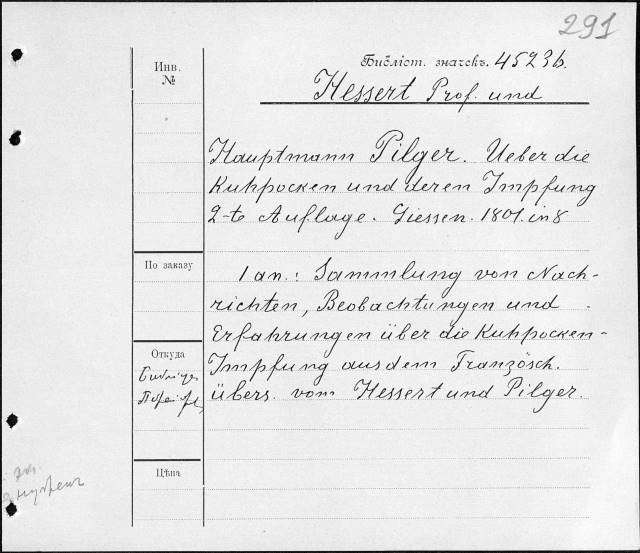 291
Инв.
№
Библіот. значекъ. 4523b.
Hessert Prof. und
Hauptmann Pilger. Ueber die
Kuhpocken und deren Impfung
2-te Auflage. Giessen. 1801. in 8
По заказу
1 an.: Sammlung von Nach-
richten, Beobachtungen und
Erfahrungen über die Kuhpocken-
Откуда
Impfung aus dem Französch.
übers. vom Hessert und Pilger.
Цѣна